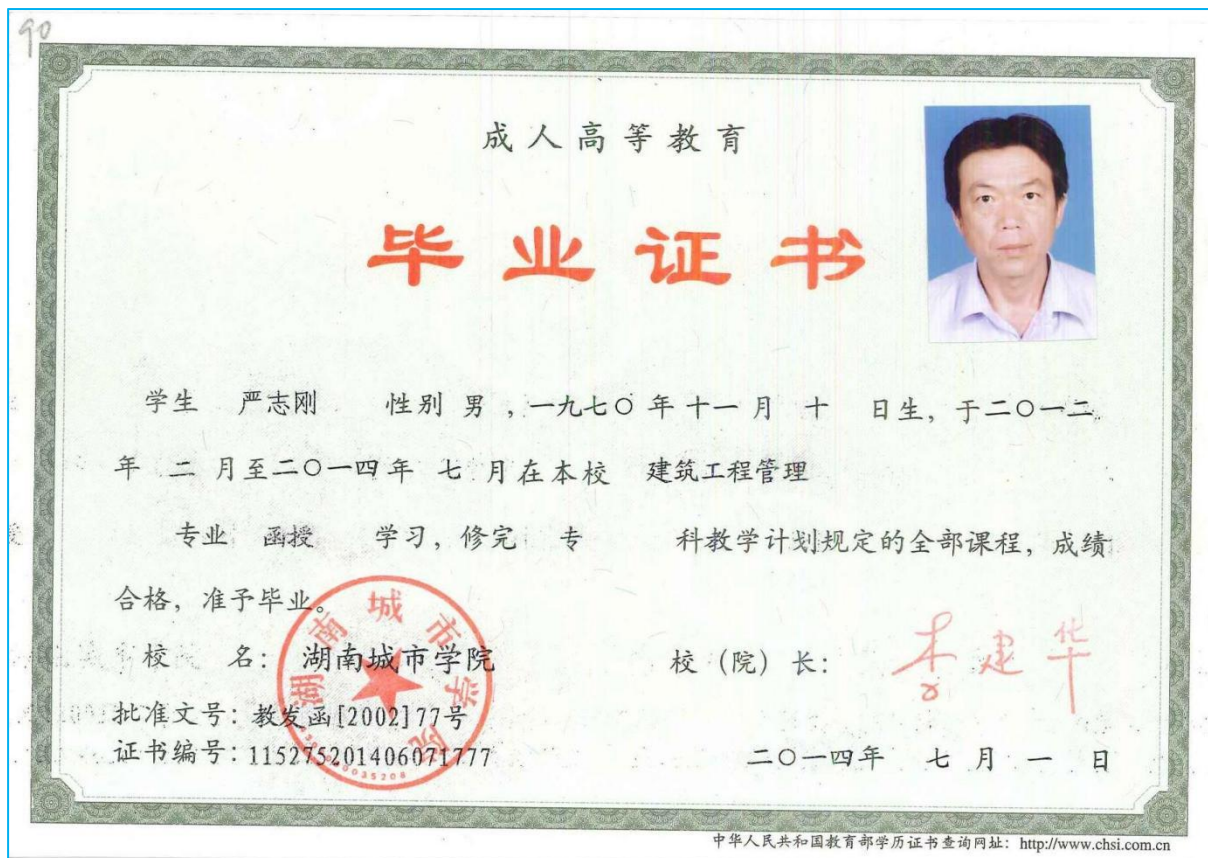 90
成人高等教育
毕业证书
学生 严志刚 性别 男 ,一九七〇 年 十一 月 十 日生, 于二〇一二
年 二 月至二〇一四年 七 月在本校 建筑工程管理
专业 函授 学习, 修完 专 科教学计划规定的全部课程, 成绩
合格, 准予毕业。
校 名: 湖南城市学院
校 (院) 长: 李建华
批准文号: 教发函[2002]77号
证书编号: 115275201406071777
二〇一四年 七 月 一 日
湖南城市学院
中华人民共和国教育部学历证书查询网址: http://www.chsi.com.cn